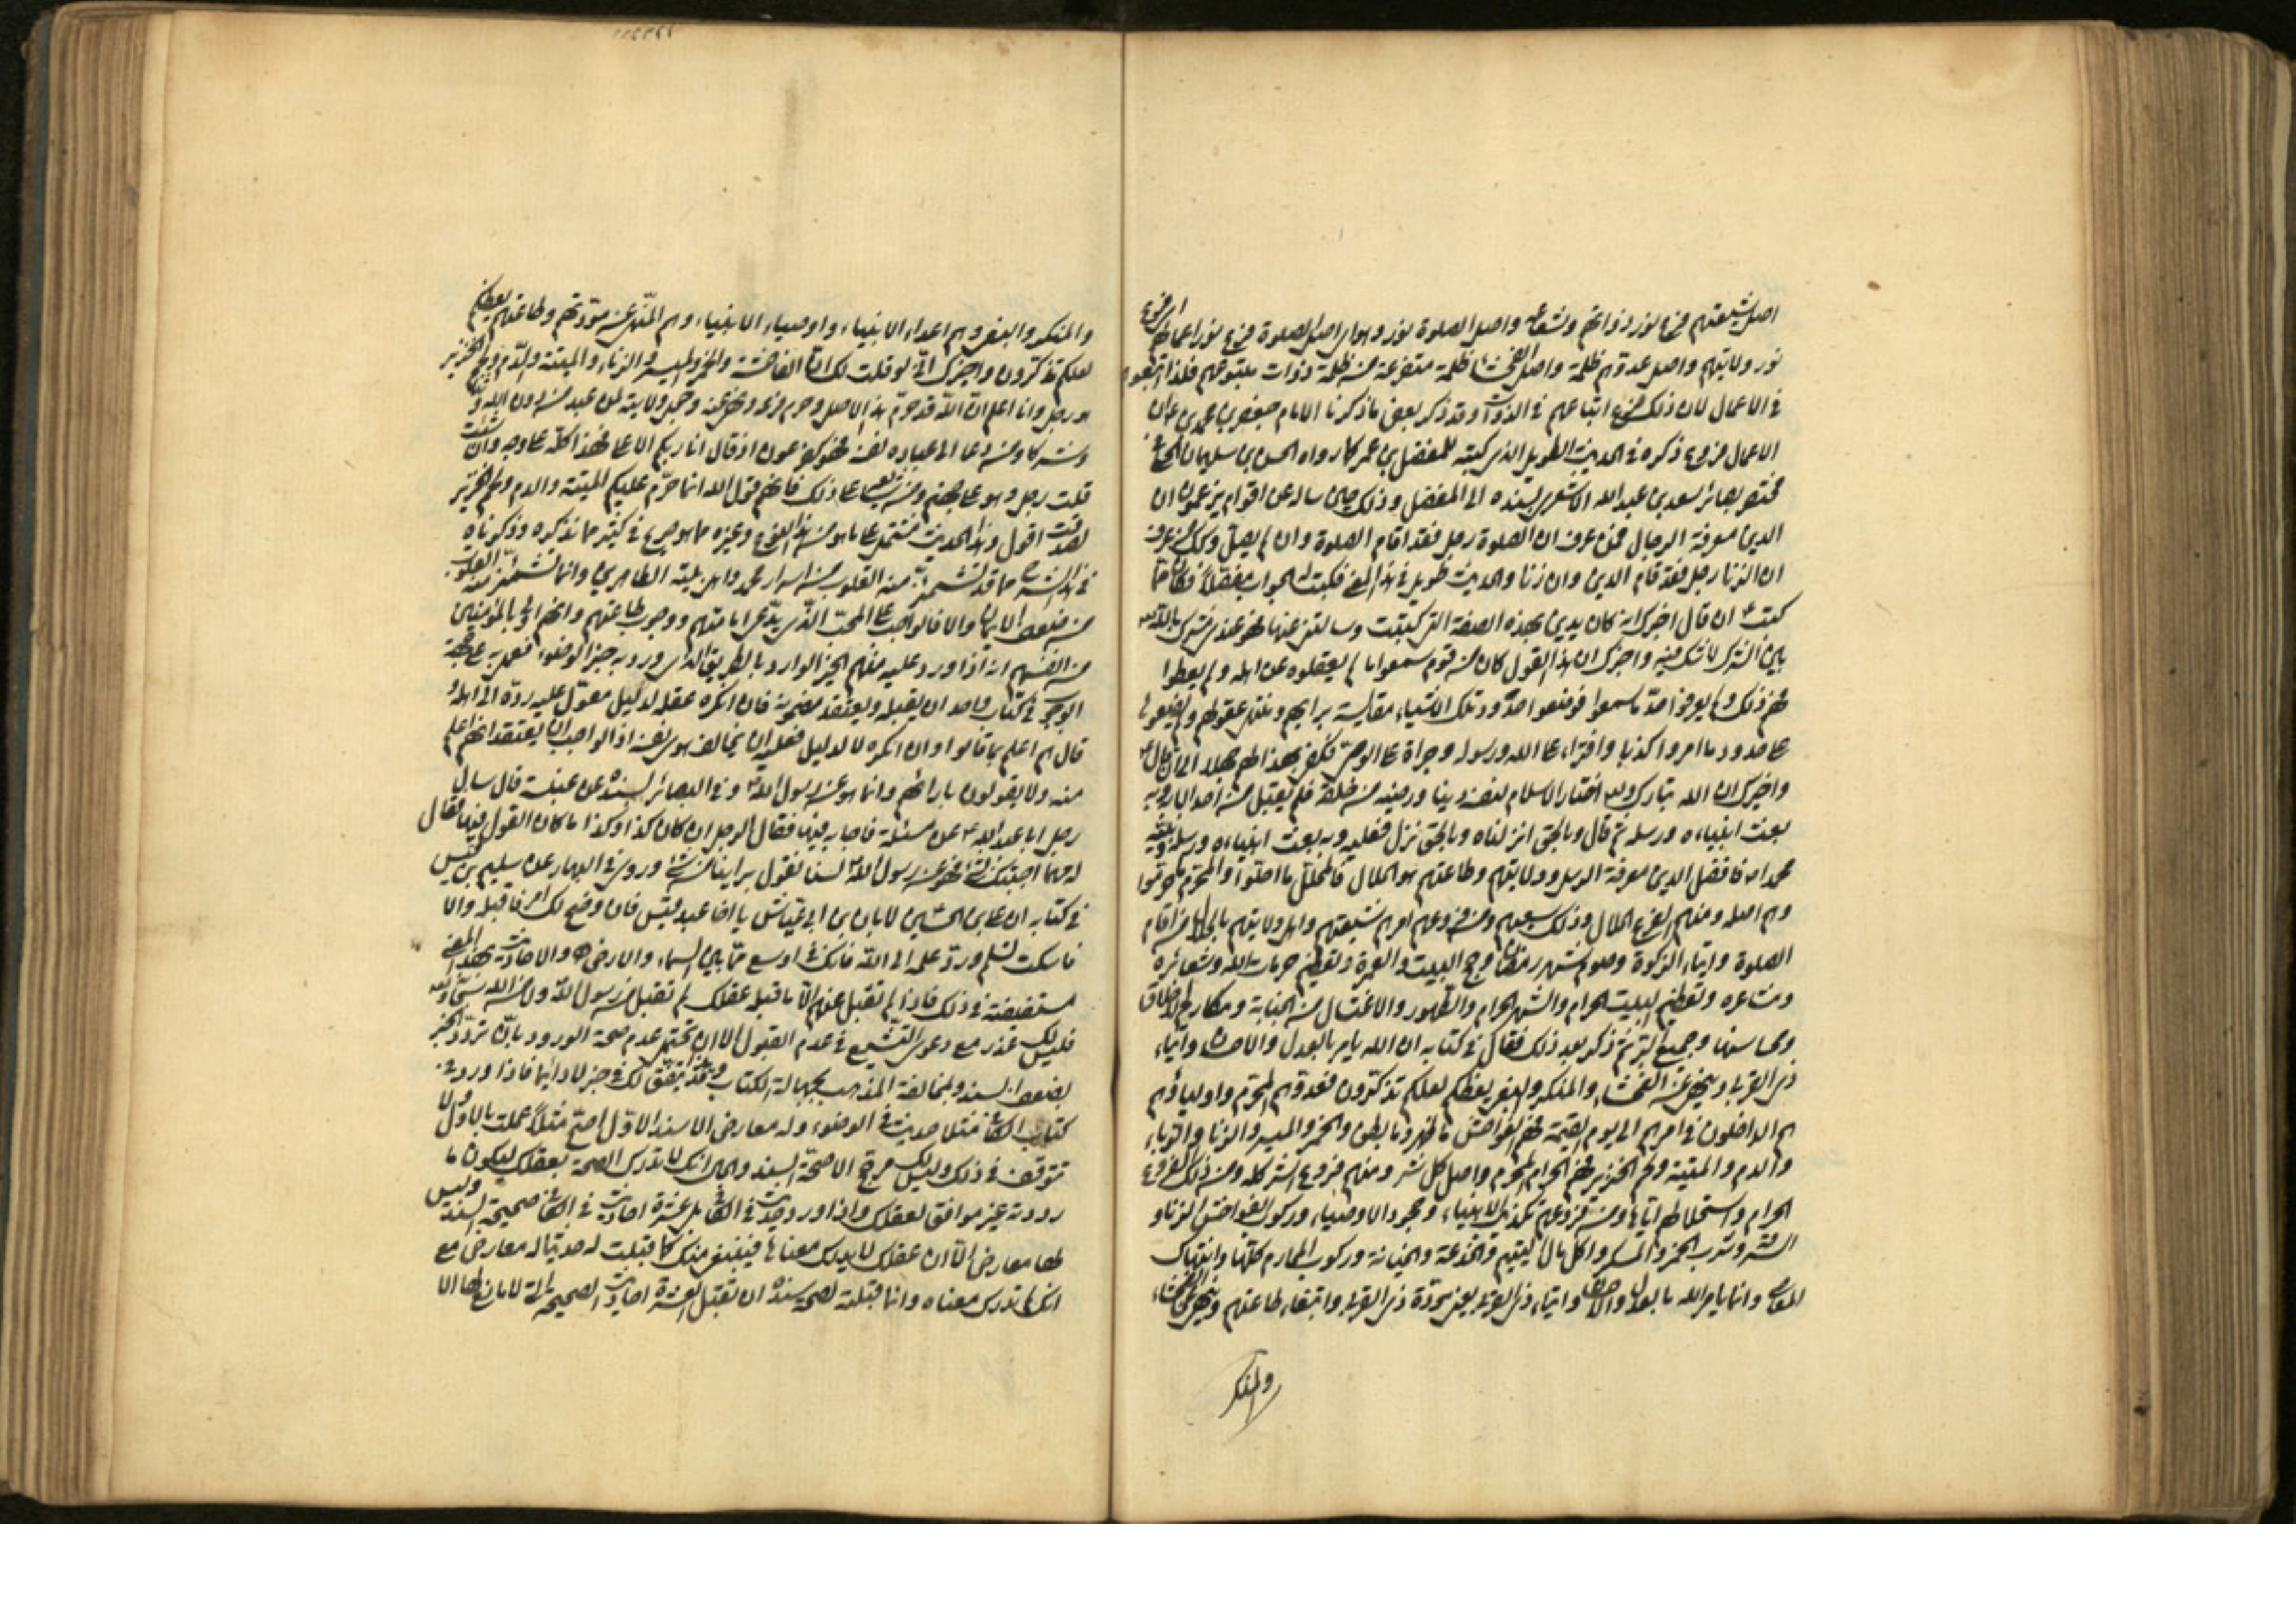 اصل شيعتهم فرع نور ذواتهم وشعاعه واصل الصلوة نور وهو اى اصل الصلوة فرع نور اعمالهم اى فرع
نور ولايتهم واصل عدوهم ظلمة واصل الفحشاء ظلمة متفرعة من ظلمة ذوات متبوعهم فلذا اتبعوهم
فى الاعمال لان ذلك فرع اتباعهم فى الذوات وقد ذكر بعض ما ذكرنا الامام جعفر بن محمد ع ان
الاعمال فروع ذكره فى الحديث الطويل الذى كتبه للمفضل بن عمر كما رواه الحسن بن سليمان الحلى فى
مختصر بصائر سعد بن عبد الله الاشعرى بسنده الى المفضل وذلك حين ساله عن اقوام يزعمون ان
الدين معرفة الرجال فمن عرف ان الصلوة رجل فقد اقام الصلوة وان لم يصل وكذا من عرف
ان الزنا رجل فقد قام الدين وان زنا والحديث طويل فى هذا المعنى فكتب الجواب مفصلا فكان مما
كتب ع ان قال اخبرك انه كان يدين بهذه الصفة التى كتبت وسالتنى عنها فهو عندى مشرك بالله
بين الشرك لا شك فيه واخبرك ان هذا القول كان من قوم سمعوا ما لم يعقلوه عن اهله ولم يعطوا
فهم ذلك ولم يعرفوا حد ما سمعوا فوضعوا حدود تلك الاشياء مقايسة برايهم ومنتهى عقولهم ولم يضعوها
على حدود ما امروا كذبا وافتراء على الله ورسوله وجراة على المعاصى فكفى بهذا لهم جهلا الى ان قال ع
واخبرك ان الله تبارك وتعالى اختار الاسلام لنفسه دينا ورضيه من خلقه فلم يقبل من احد الا به وبه
بعث انبياءه ورسله ثم قال وبالحق انزلناه وبالحق نزل فعليه وبه بعث انبياءه ورسله ونبيه
محمدا ص فافضل الدين معرفة الرسل وولايتهم وطاعتهم هو الحلال فالمحلل ما احلوا والمحرم ما حرموا
وهم اصله ومنهم الفرع الحلال وذلك سعيهم ومن فروعهم امرهم شيعتهم واهل ولايتهم بالحلال من اقام
الصلوة وايتاء الزكوة وصوم شهر رمضان وحج البيت والعمرة وتعظيم حرمات الله وشعائره
ومشاعره وتعظيم البيت الحرام والشهر الحرام والطهور والاغتسال من الجنابة ومكارم الاخلاق
ومحاسنها وجميع البر ثم ذكر بعد ذلك فقال فى كتابه ان الله يامر بالعدل والاحسان وايتاء
ذى القربى وينهى عن الفحشاء والمنكر والبغى يعظكم لعلكم تذكرون فعدوهم هم المحرم واولياؤهم
هم الداخلون فى امرهم الى يوم القيمة فهم الفواحش ما ظهر وما بطن والخمر والميسر والزنا والربا
والدم والميتة ولحم الخنزير فهم الحرام المحرم واصل كل شر ومنهم فروع الشر كله ومن ذلك الفروع
الحرام واستحلالهم اياها ومن فروعهم تكذيب الانبياء وجحود الاوصياء وركوب الفواحش الزنا و
السرقة وشرب الخمر والمسكر واكل مال اليتيم والخدعة والخيانة وركوب المحارم كلها وانتهاك
المعاصى وانما يامر الله بالعدل والاحسان وايتاء ذى القربى يعنى مودة ذى القربى وابتغاء طاعتهم وينهى عن الفحشاء
والمنكر
والمنكر والبغى وهم اعداء الانبياء واوصياء الانبياء وهم المنهى عن مودتهم وطاعتهم يعظكم
لعلكم تذكرون واخبرك انى لو قلت لك ان الفاحشة والخمر والميسر والزنا والميتة والدم ولحم الخنزير
هو رجل وانا اعلم ان الله قد حرم هذا الاصل وحرم فرعه ونهى عنه وجعل ولايته كمن عبد من دون الله وثنا
وشركا ومن دعا الى عبادة نفسه فهو كفرعون اذ قال انا ربكم الاعلى فهذا كله على وجه وان شئت
قلت رجل وهو على جهنم ومن شايعه على ذلك فافهم قول الله انما حرم عليكم الميتة والدم ولحم الخنزير
لصدقت اقول وهذا الحديث مشتمل على ما هو من هذا النوع وغيره مما هو صريح فى كثير مما نذكره وذكرناه
فى هذا الشرح مما قد تشمئز منه القلوب من اسرار محمد واهل بيته الطاهرين وانما تشمئز منه القلوب
من ضعف الايمان والا فالواجب على المحب الذى يدعى امامتهم ووجوب طاعتهم وانهم اولى بالمؤمنين
من انفسهم انه اذا ورد عليه منهم الخبر الوارد بالطريق الذى ورد به خبر الوضوء فعمل به على جهة
الوجوب فى كتاب واحد ان يقبله ويعتقد مضمونه فان انكره عقله لدليل معول عليه رده الى اهله و
قال هم اعلم بما قالوا وان انكره لا لدليل فعليه ان يخالف هوى نفسه اذ الواجب ان يعتقد انهم اعلم
منه ولا يقولون بارائهم وانما هو عن رسول الله ص وفى البصائر بسنده عن عنبسة قال سال
رجل ابا عبد الله ع عن مسئلة فاجابه فيها فقال الرجل ان كان كذا وكذا ما كان القول فيها فقال
له مهما اجبتك فيه بشئ فهو عن رسول الله ص لسنا نقول براينا من شئ وروى فى البحار عن سليم بن قيس
فى كتابه ان على بن الحسين ع لابان بن ابى عياش يا اخا عبد قيس فان وضح لك امر فاقبله والا
فاسكت تسلم ورد علمه الى الله فانك فى اوسع مما بين السماء والارض ه والاحاديث بهذا المعنى
مستفيضة فى ذلك فاذا لم تقبل عنهم الا ما قبله عقلك لم تقبل من رسول الله ولا من الله سبحانه
فليس لك عذر مع دعوى التشيع فى عدم القبول الا ان تحتمل عدم صحة الورود بان ترد الخبر
لضعف السند ولمخالفة المذهب بجهالة الكتاب وهذا قد يتفق لك فى خبر لا دائما فاذا ورد فى
كتاب الكافى مثلا حديث فى الوضوء وله معارض الا سند الاول اصح مثلا عملت بالاول ولا
تتوقف فى ذلك وليس لك مرجح الا صحة السند والحال انك لا تدرك الصحة بعقلك ليكون ما
رددته غير موافق لعقلك واذا ورد حديث فى الكافى بل عشرة احاديث فى الكافى صحيحة السند وليس
لها معارض الا ان عقلك لا يدرك معناها فينبغى منك كما قبلت له حديثا له معارض مع
انك لم تدرك معناه وانما قبلته لصحة سنده ان تقبل العشرة احاديث الصحيحة التى لا مانع لها الا